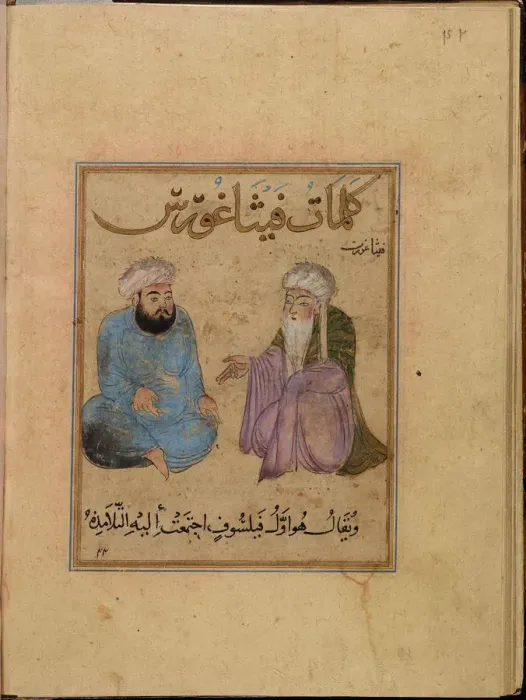 كَلَمَاتُ فَيْثَاغُوْرَسْ
فيثاغورس
وَيُقَالُ هُوَ اَوَّلُ فَيلَسُوفٍ، اجْتَمَعَتْ إِلَيْهِ التَّلَامِذَهُ
٢٢